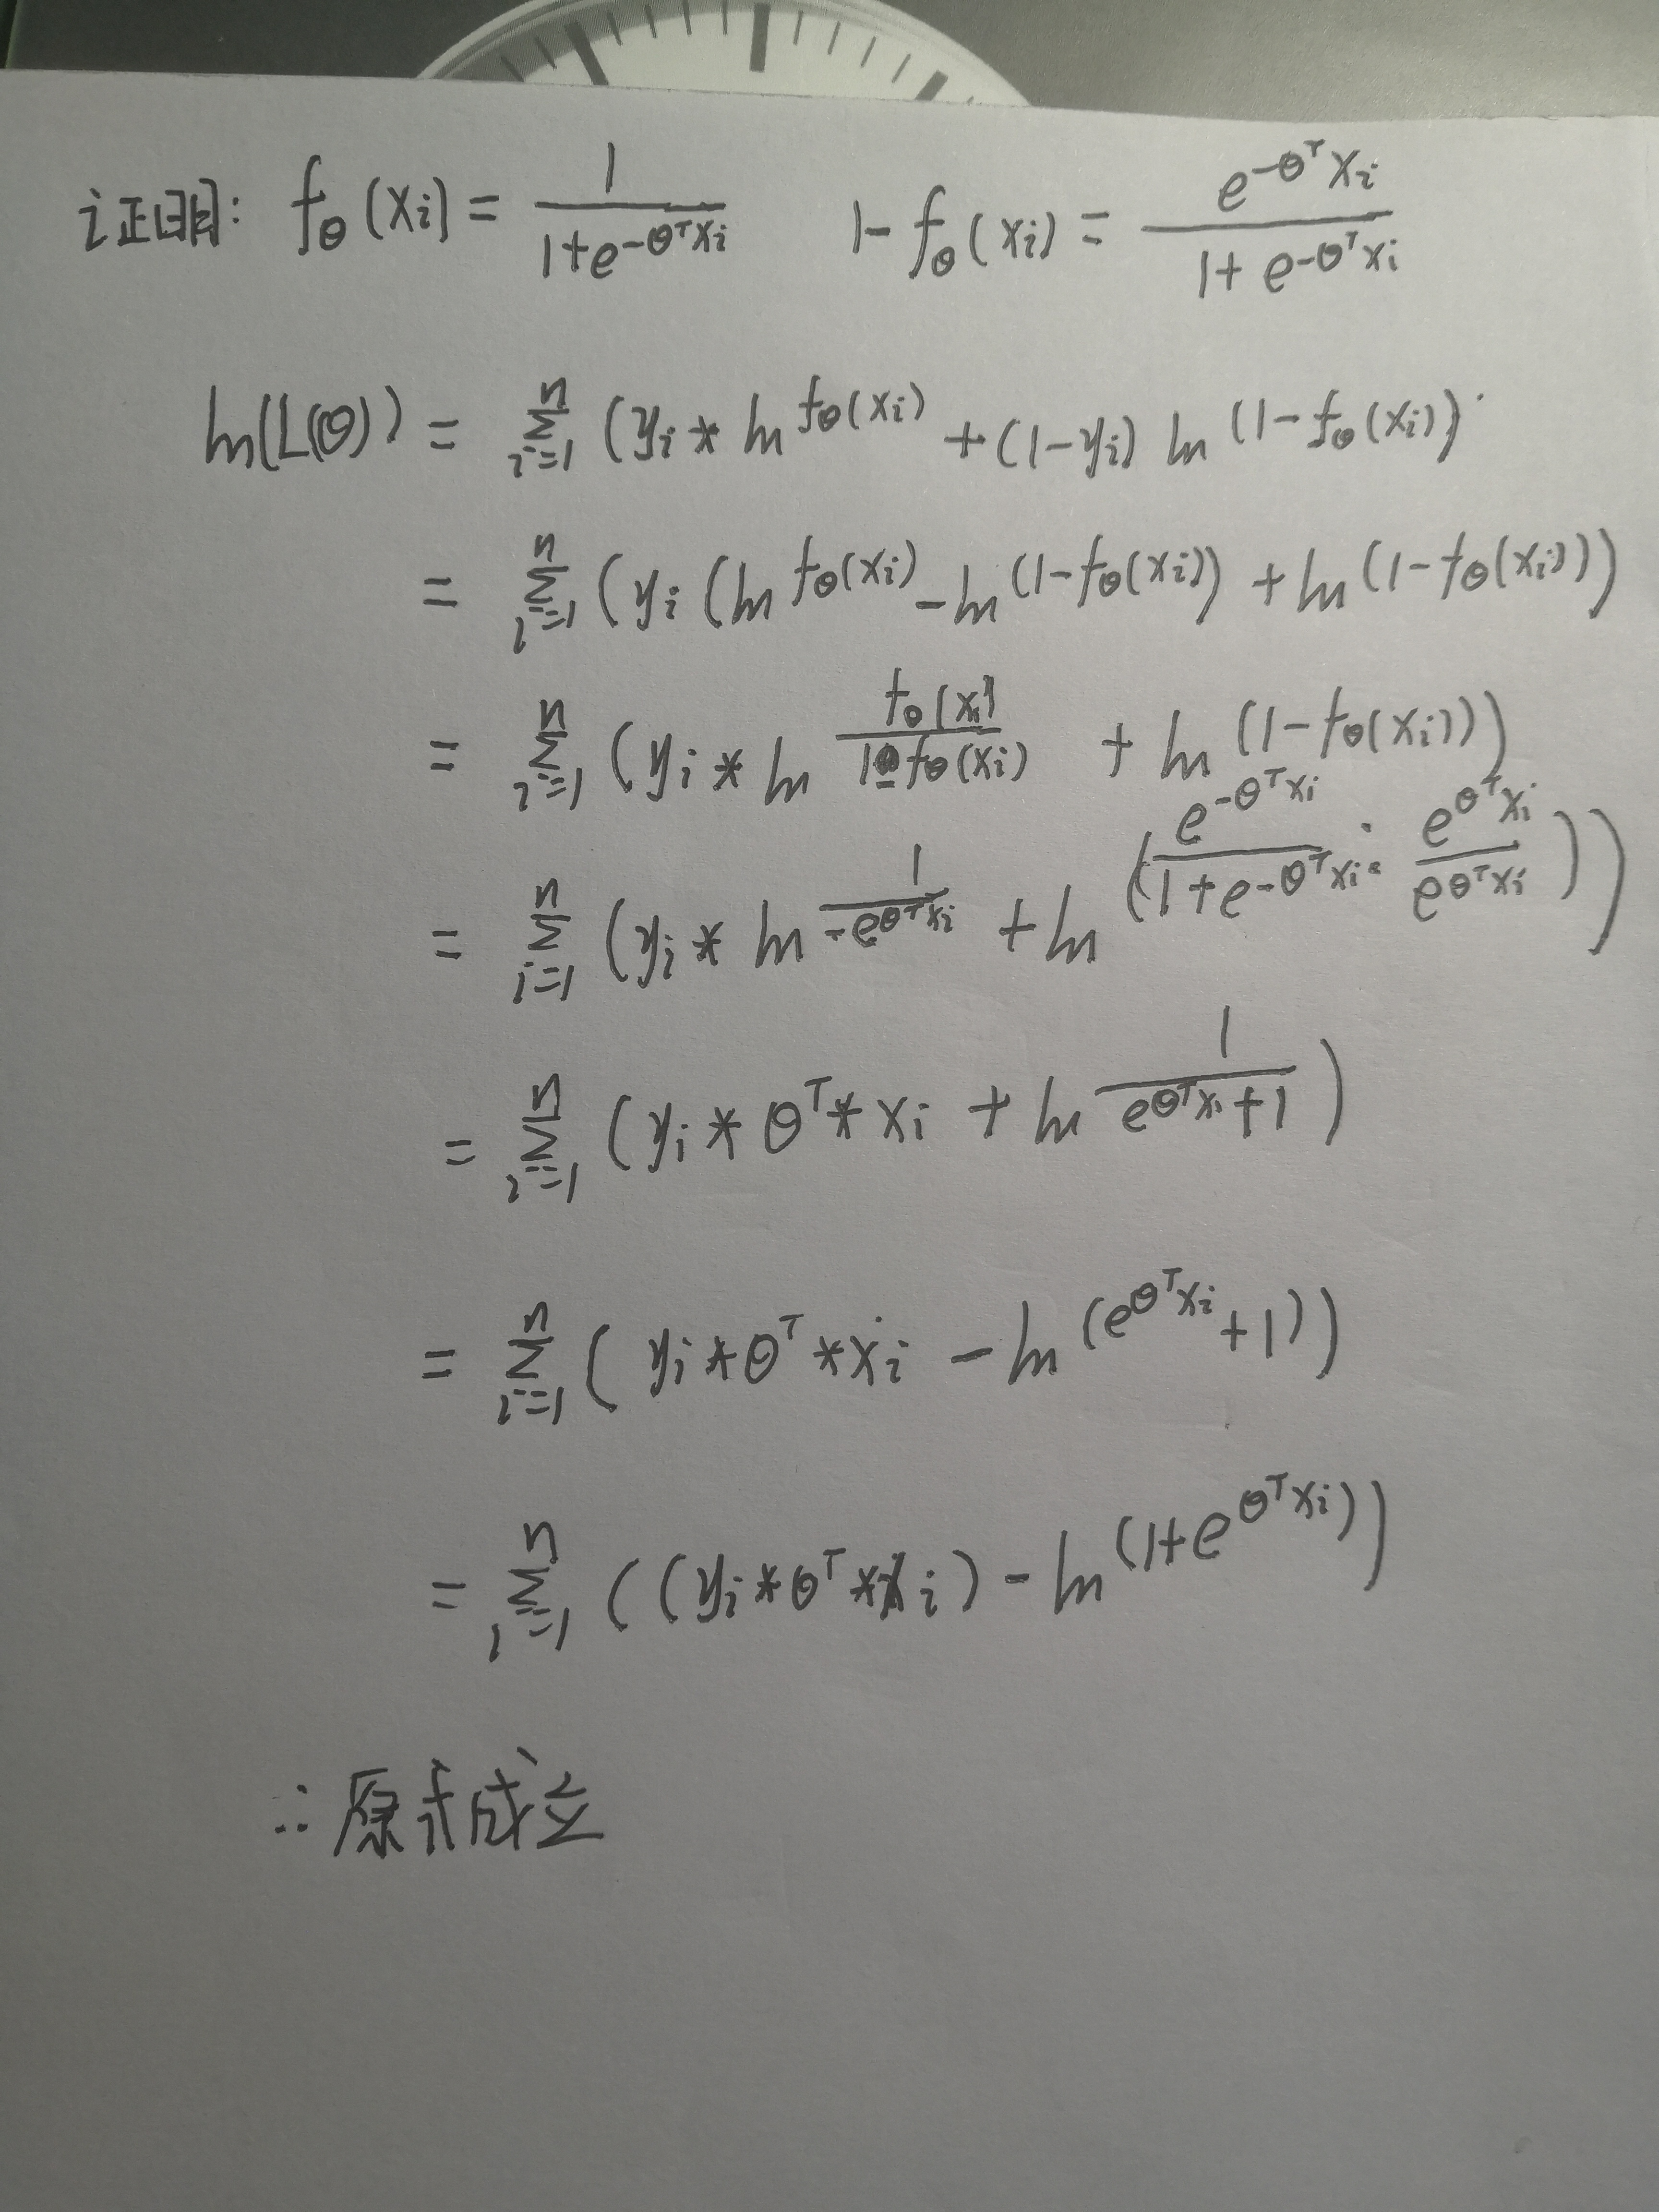 证明: fθ(xi) = 1/(1+e^(-θ^T xi))    1-fθ(xi) = e^(-θ^T xi)/(1+e^(-θ^T xi))
ln(L(θ)) = Σ_{i=1}^{n} (yi * ln^{fθ(xi)} + (1-yi) ln^{(1-fθ(xi))}
= Σ_{i=1}^{n} (yi (ln^{fθ(xi)} - ln^{(1-fθ(xi))}) + ln^{(1-fθ(xi))})
= Σ_{i=1}^{n} (yi * ln^{fθ(xi)/(1-fθ(xi))} + ln^{(1-fθ(xi))})
= Σ_{i=1}^{n} (yi * ln^{1/(-e^{θ^T xi})} + ln^{(e^{-θ^T xi}/(1+e^{-θ^T xi}) · e^{θ^T xi}/e^{θ^T xi})})
= Σ_{i=1}^{n} (yi * θ^T * xi + ln^{1/(e^{θ^T xi}+1)})
= Σ_{i=1}^{n} (yi * θ^T * xi - ln^{(e^{θ^T xi}+1)})
= Σ_{i=1}^{n} ((yi * θ^T * xi) - ln^{(1+e^{θ^T xi})})
∴ 原式成立